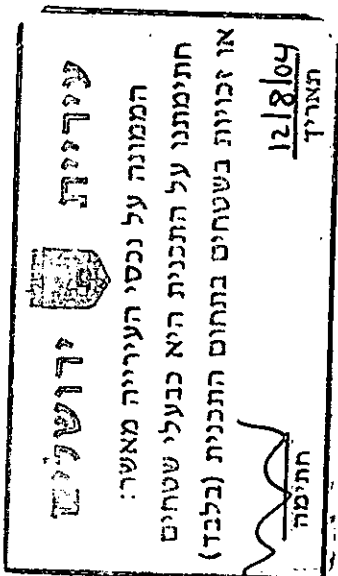 עיריית ירושלים
הממונה על נכסי העירייה מאשר:
חתימתנו על התכנית היא כבעלי שטחים
או זכויות בשטחים בתחום התכנית (בלבד)
12/8/04
תאריך
חתימה